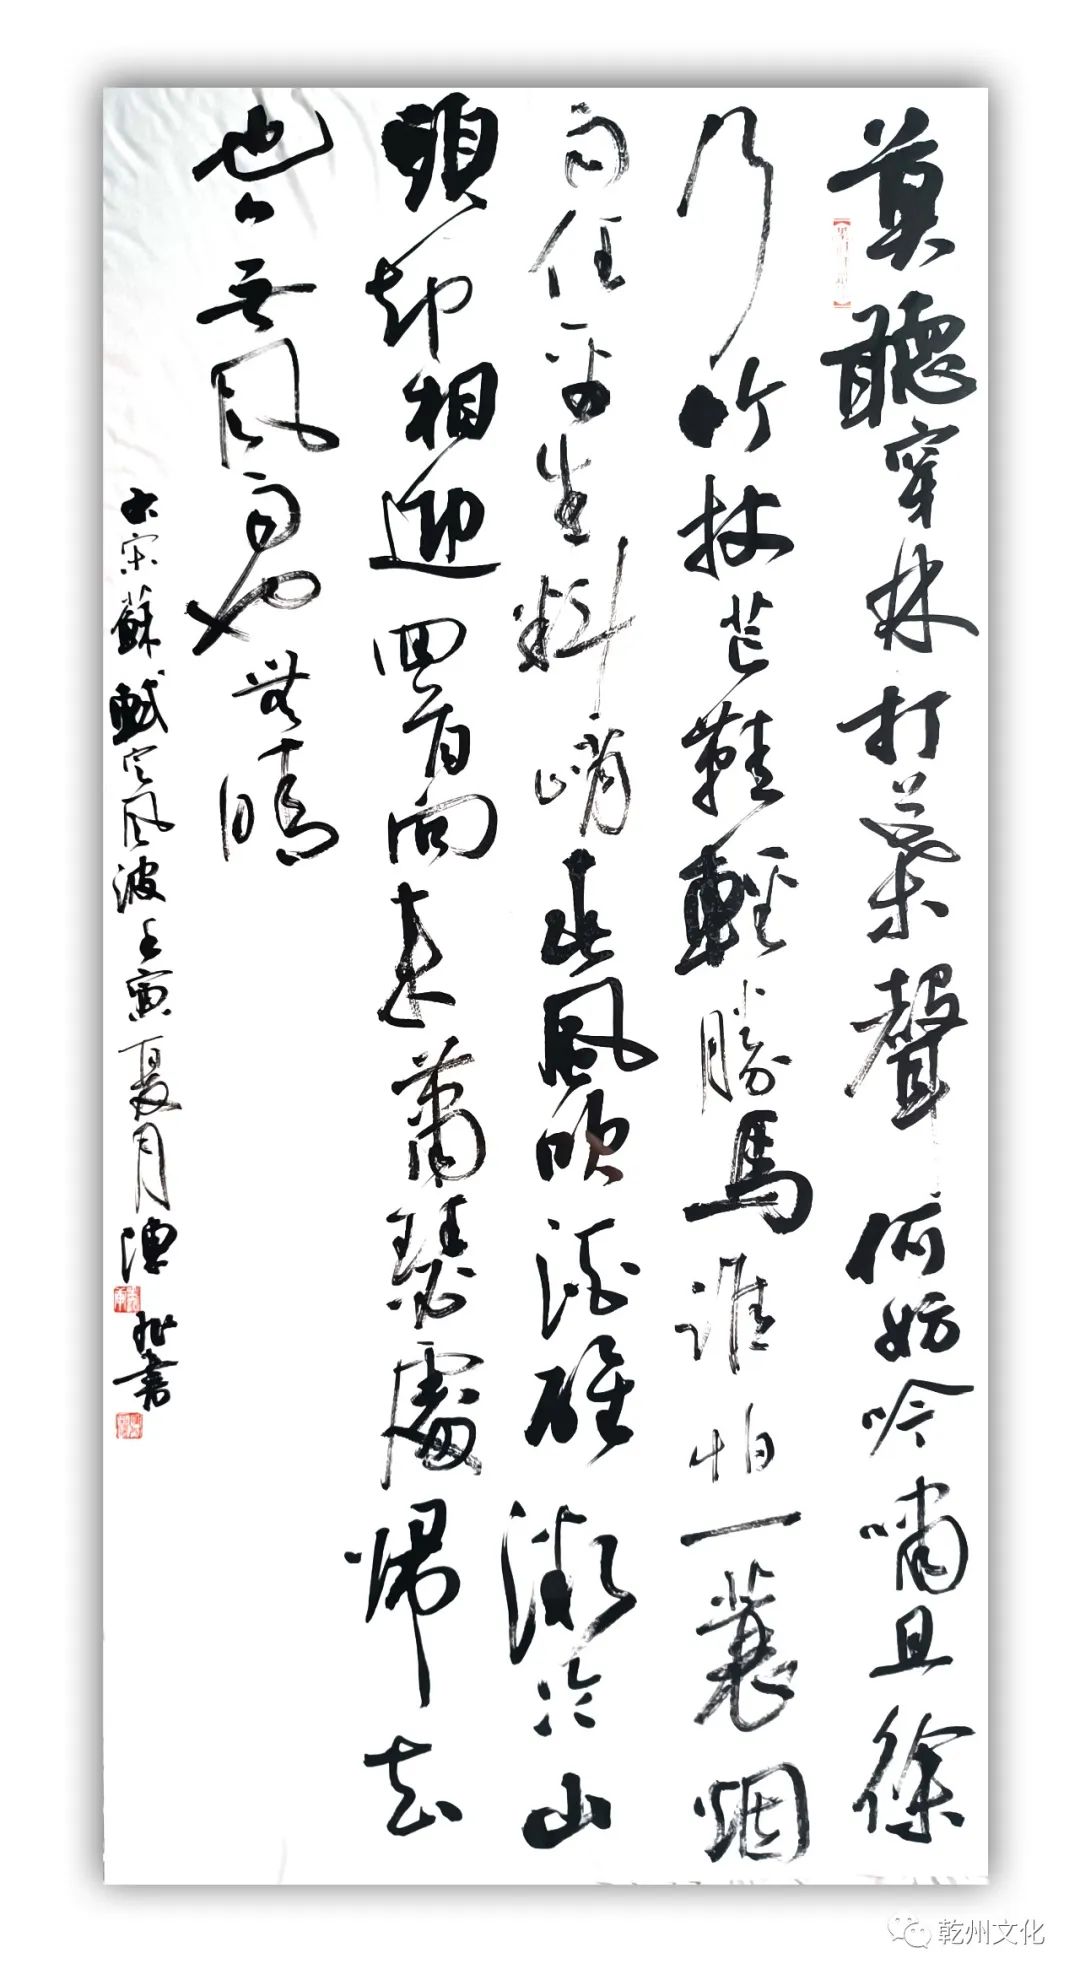 莫聽穿林打葉聲何妨吟嘯且徐
行竹杖芒鞋輕勝馬誰怕一蓑烟
雨任平生料峭春風吹酒醒微冷山
頭却相迎回首向来蕭瑟處歸去
也无風雨也無晴
大宋蘇軾定風波壬寅夏月書
乾州文化